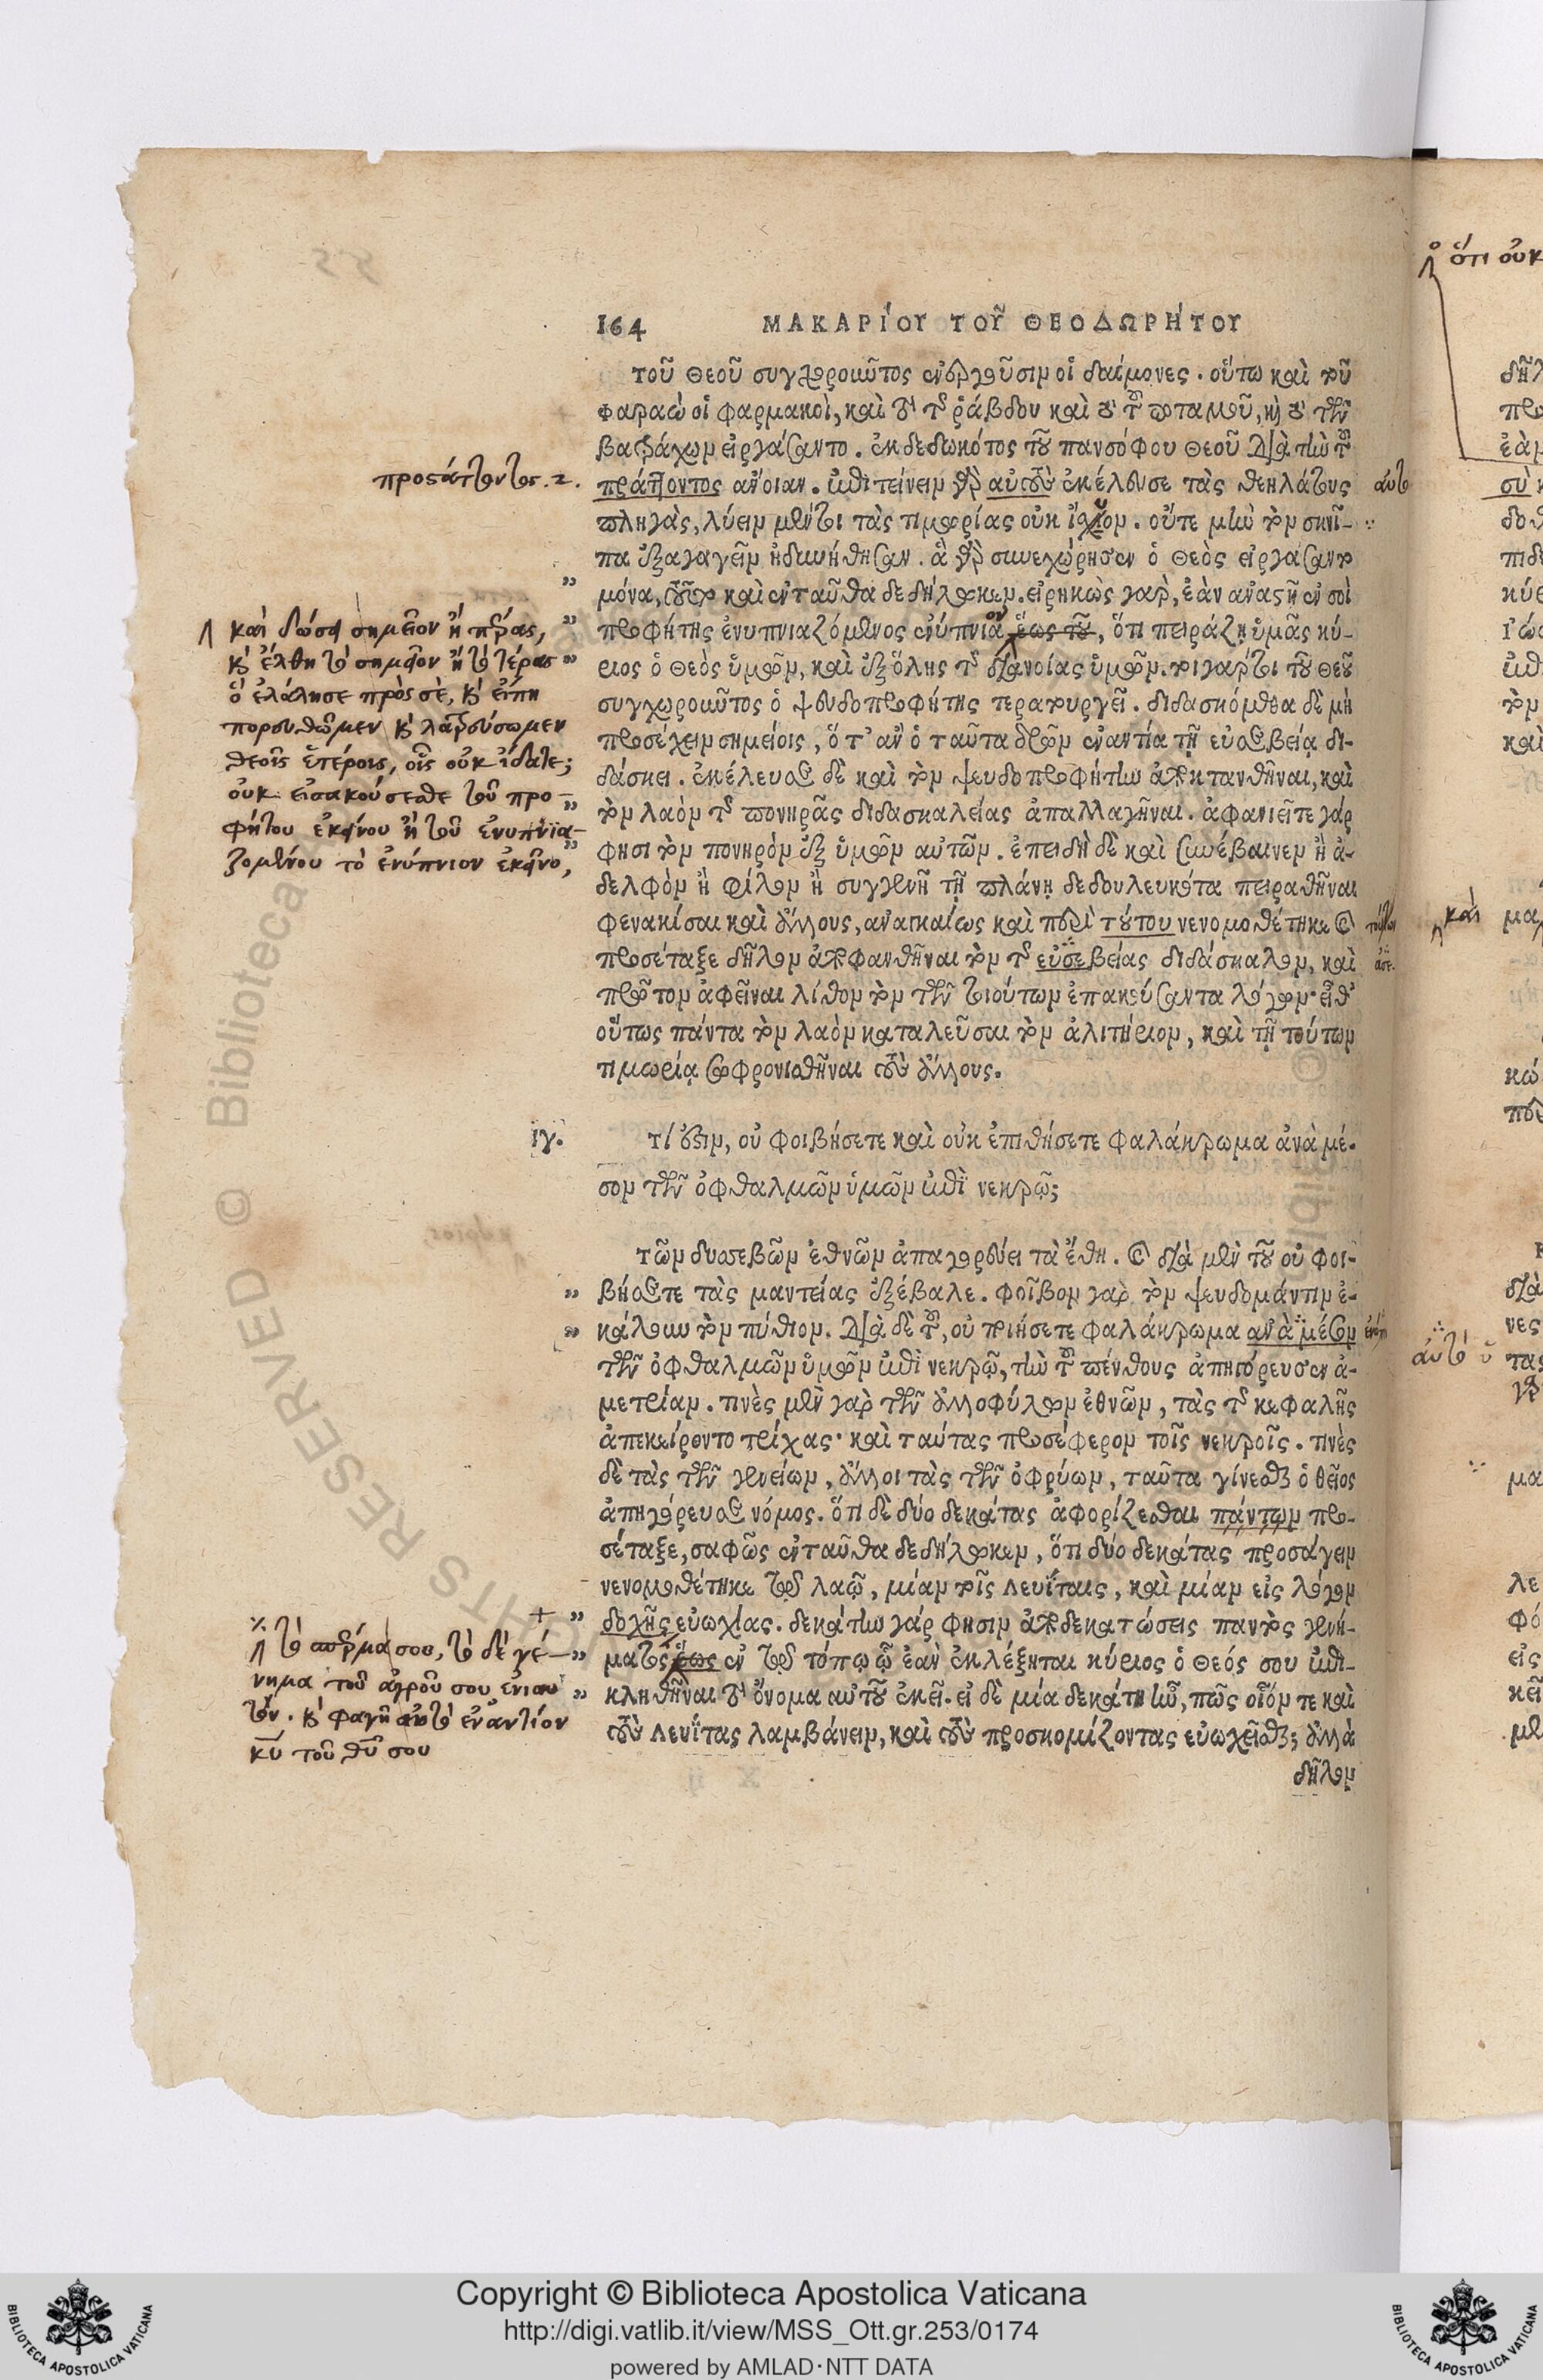 164 ΜΑΚΑΡΊΟΥ ΤΟΥ͂ ΘΕΟΔΩΡΉΤΟΥ
τοῦ Θεοῦ συγχωροῦντος ἐνεργοῦσιν οἱ δαίμονες. οὕτω καὶ τοῦ
Φαραὼ οἱ φαρμακοὶ, καὶ τὴν ῥάβδον καὶ τὸ τοῦ ποταμοῦ, καὶ τὸ τῶν
βατράχων εἰργάσαντο. ἐκδεδωκότος τοῦ πανσόφου Θεοῦ διὰ τὴν τοῦ
πράττοντος ἄνοιαν. ἐπιτείνειν γὰρ αὐτοὺς ἐκέλευσε τὰς θεηλάτους
πληγὰς, λύειν μέντοι τὰς τιμωρίας οὐκ ἴσχυον. οὔτε μὴν τὸν σκνῖ-
πα ἐξαγαγεῖν ἠδυνήθησαν. ἃ γὰρ συνεχώρησεν ὁ Θεὸς εἰργάσαντο
μόνα, τοῦτο καὶ ἐνταῦθα δεδήλωκεν. εἰρηκὼς γὰρ, ἐὰν ἀναστῇ ἐν σοὶ
προφήτης ἐνυπνιαζόμενος ἐνύπνια ἕως τοῦ, ὅτι πειράζῃ ὑμᾶς κύ-
ριος ὁ Θεὸς ὑμῶν, καὶ ἐξ ὅλης τῆς διανοίας ὑμῶν. τιγαρτοι τοῦ Θεοῦ
συγχωροῦντος ὁ ψευδοπροφήτης τερατουργεῖ. διδασκόμεθα δὲ μὴ
προσέχειν σημείοις, ὅτ' ἂν ὁ ταῦτα δρῶν ἐναντία τῇ εὐσεβείᾳ δι-
δάσκει. ἐκέλευσε δὲ καὶ τὸν ψευδοπροφήτην ἀποκτανθῆναι, καὶ
τὸν λαὸν τῆς πονηρᾶς διδασκαλείας ἀπαλλαγῆναι. ἀφανιεῖτε γάρ
φησι τὸν πονηρὸν ἐξ ὑμῶν αὐτῶν. ἐπειδὴ δὲ καὶ συνέβαινεν ἢ ἀ-
δελφὸν ἢ φίλον ἢ συγγενῆ τῇ πλάνῃ δεδουλευκότα πειραθῆναι
φενακίσαι καὶ ἄλλους, ἀναγκαίως καὶ περὶ τούτου νενομοθέτηκε καὶ
προσέταξε δῆλον ἀποφανθῆναι τὸν τῆς εὐσεβείας διδάσκαλον, καὶ
πρῶτον ἀφεῖναι λίθον τὸν τῶν τοιούτων ἐπακούσαντα λόγων· εἶθ'
οὕτως πάντα τὸν λαὸν καταλεῦσαι τὸν ἀλιτήριον, καὶ τῇ τούτων
τιμωρίᾳ σωφρονισθῆναι τοὺς ἄλλους.
ιγ. τί ἐστιν, οὐ φοιβήσετε καὶ οὐκ ἐπιθήσετε φαλάκρωμα ἀνὰ μέ-
σον τῶν ὀφθαλμῶν ὑμῶν ἐπὶ νεκρῷ;
τῶν δυσσεβῶν ἐθνῶν ἀπαγορεύει τὰ ἔθη. καὶ διὰ μὲν τοῦ οὐ φοι-
βήσετε τὰς μαντείας ἐξέβαλε. Φοῖβον γὰρ τὸν ψευδομάντιν ἐ-
κάλουν τὸν πύθιον. διὰ δὲ τοῦ, οὐ ποιήσετε φαλάκρωμα ἀνὰ μέσον
τῶν ὀφθαλμῶν ὑμῶν ἐπὶ νεκρῷ, τὴν τοῦ πένθους ἀπηγόρευσεν ἀ-
μετρίαν. τινὲς μὲν γὰρ τῶν ἀλλοφύλων ἐθνῶν, τὰς τῆς κεφαλῆς
ἀπεκείροντο τρίχας· καὶ ταύτας προσέφερον τοῖς νεκροῖς. τινὲς
δὲ τὰς τῶν γενείων, ἄλλοι τὰς τῶν ὀφρύων, ταῦτα γίνεσθαι ὁ θεῖος
ἀπηγόρευσε νόμος. ὅτι δὲ δύο δεκάτας ἀφορίζεσθαι πάντων προ-
σέταξε, σαφῶς ἐνταῦθα δεδήλωκεν, ὅτι δύο δεκάτας προσάγειν
νενομοθέτηκε τῷ λαῷ, μίαν τοῖς Λευΐταις, καὶ μίαν εἰς λόγον
δοχῆς εὐωχίας. δεκάτην γάρ φησιν ἀποδεκατώσεις παντὸς γενή-
ματος ἕως ἐν τῷ τόπῳ ᾧ ἐὰν ἐκλέξηται κύριος ὁ Θεός σου ἐπι-
κληθῆναι τὸ ὄνομα αὐτοῦ ἐκεῖ. εἰ δὲ μία δεκάτη ἦν, πῶς οἷόν τε καὶ
τοὺς Λευΐτας λαμβάνειν, καὶ τοὺς προσκομίζοντας εὐωχεῖσθαι; ἀλλὰ
δῆλον
προστάττοντος. 2.
καὶ δώσει σημεῖον ἢ τέρας,
καὶ ἔλθη τὸ σημεῖον ἢ τὸ τέρας
ὃ ἐλάλησε πρὸς σὲ, καὶ εἴπη
πορευθῶμεν καὶ λατρεύσωμεν
θεοῖς ἑτέροις, οἷς οὐκ ἴδατε;
οὐκ εἰσακούσεσθε τοῦ προ-
φήτου ἐκείνου ἢ τοῦ ἐνυπνια-
ζομένου τὸ ἐνύπνιον ἐκεῖνο,
τὸ σπέρμα σου, τὸ δὲ γέ-
νημα τοῦ ἀγροῦ σου ἐνιαυ
τόν. καὶ φαγῆ αὐτὸ ἐναντίον
κυ τοῦ θυ σου
ὅτι οὐκ
καὶ
Copyright © Biblioteca Apostolica Vaticana
http://digi.vatlib.it/view/MSS_Ott.gr.253/0174
powered by AMLAD·NTT DATA
BIBLIOTECA APOSTOLICA VATICANA
BIBLIOTECA APOSTOLICA VATICANA